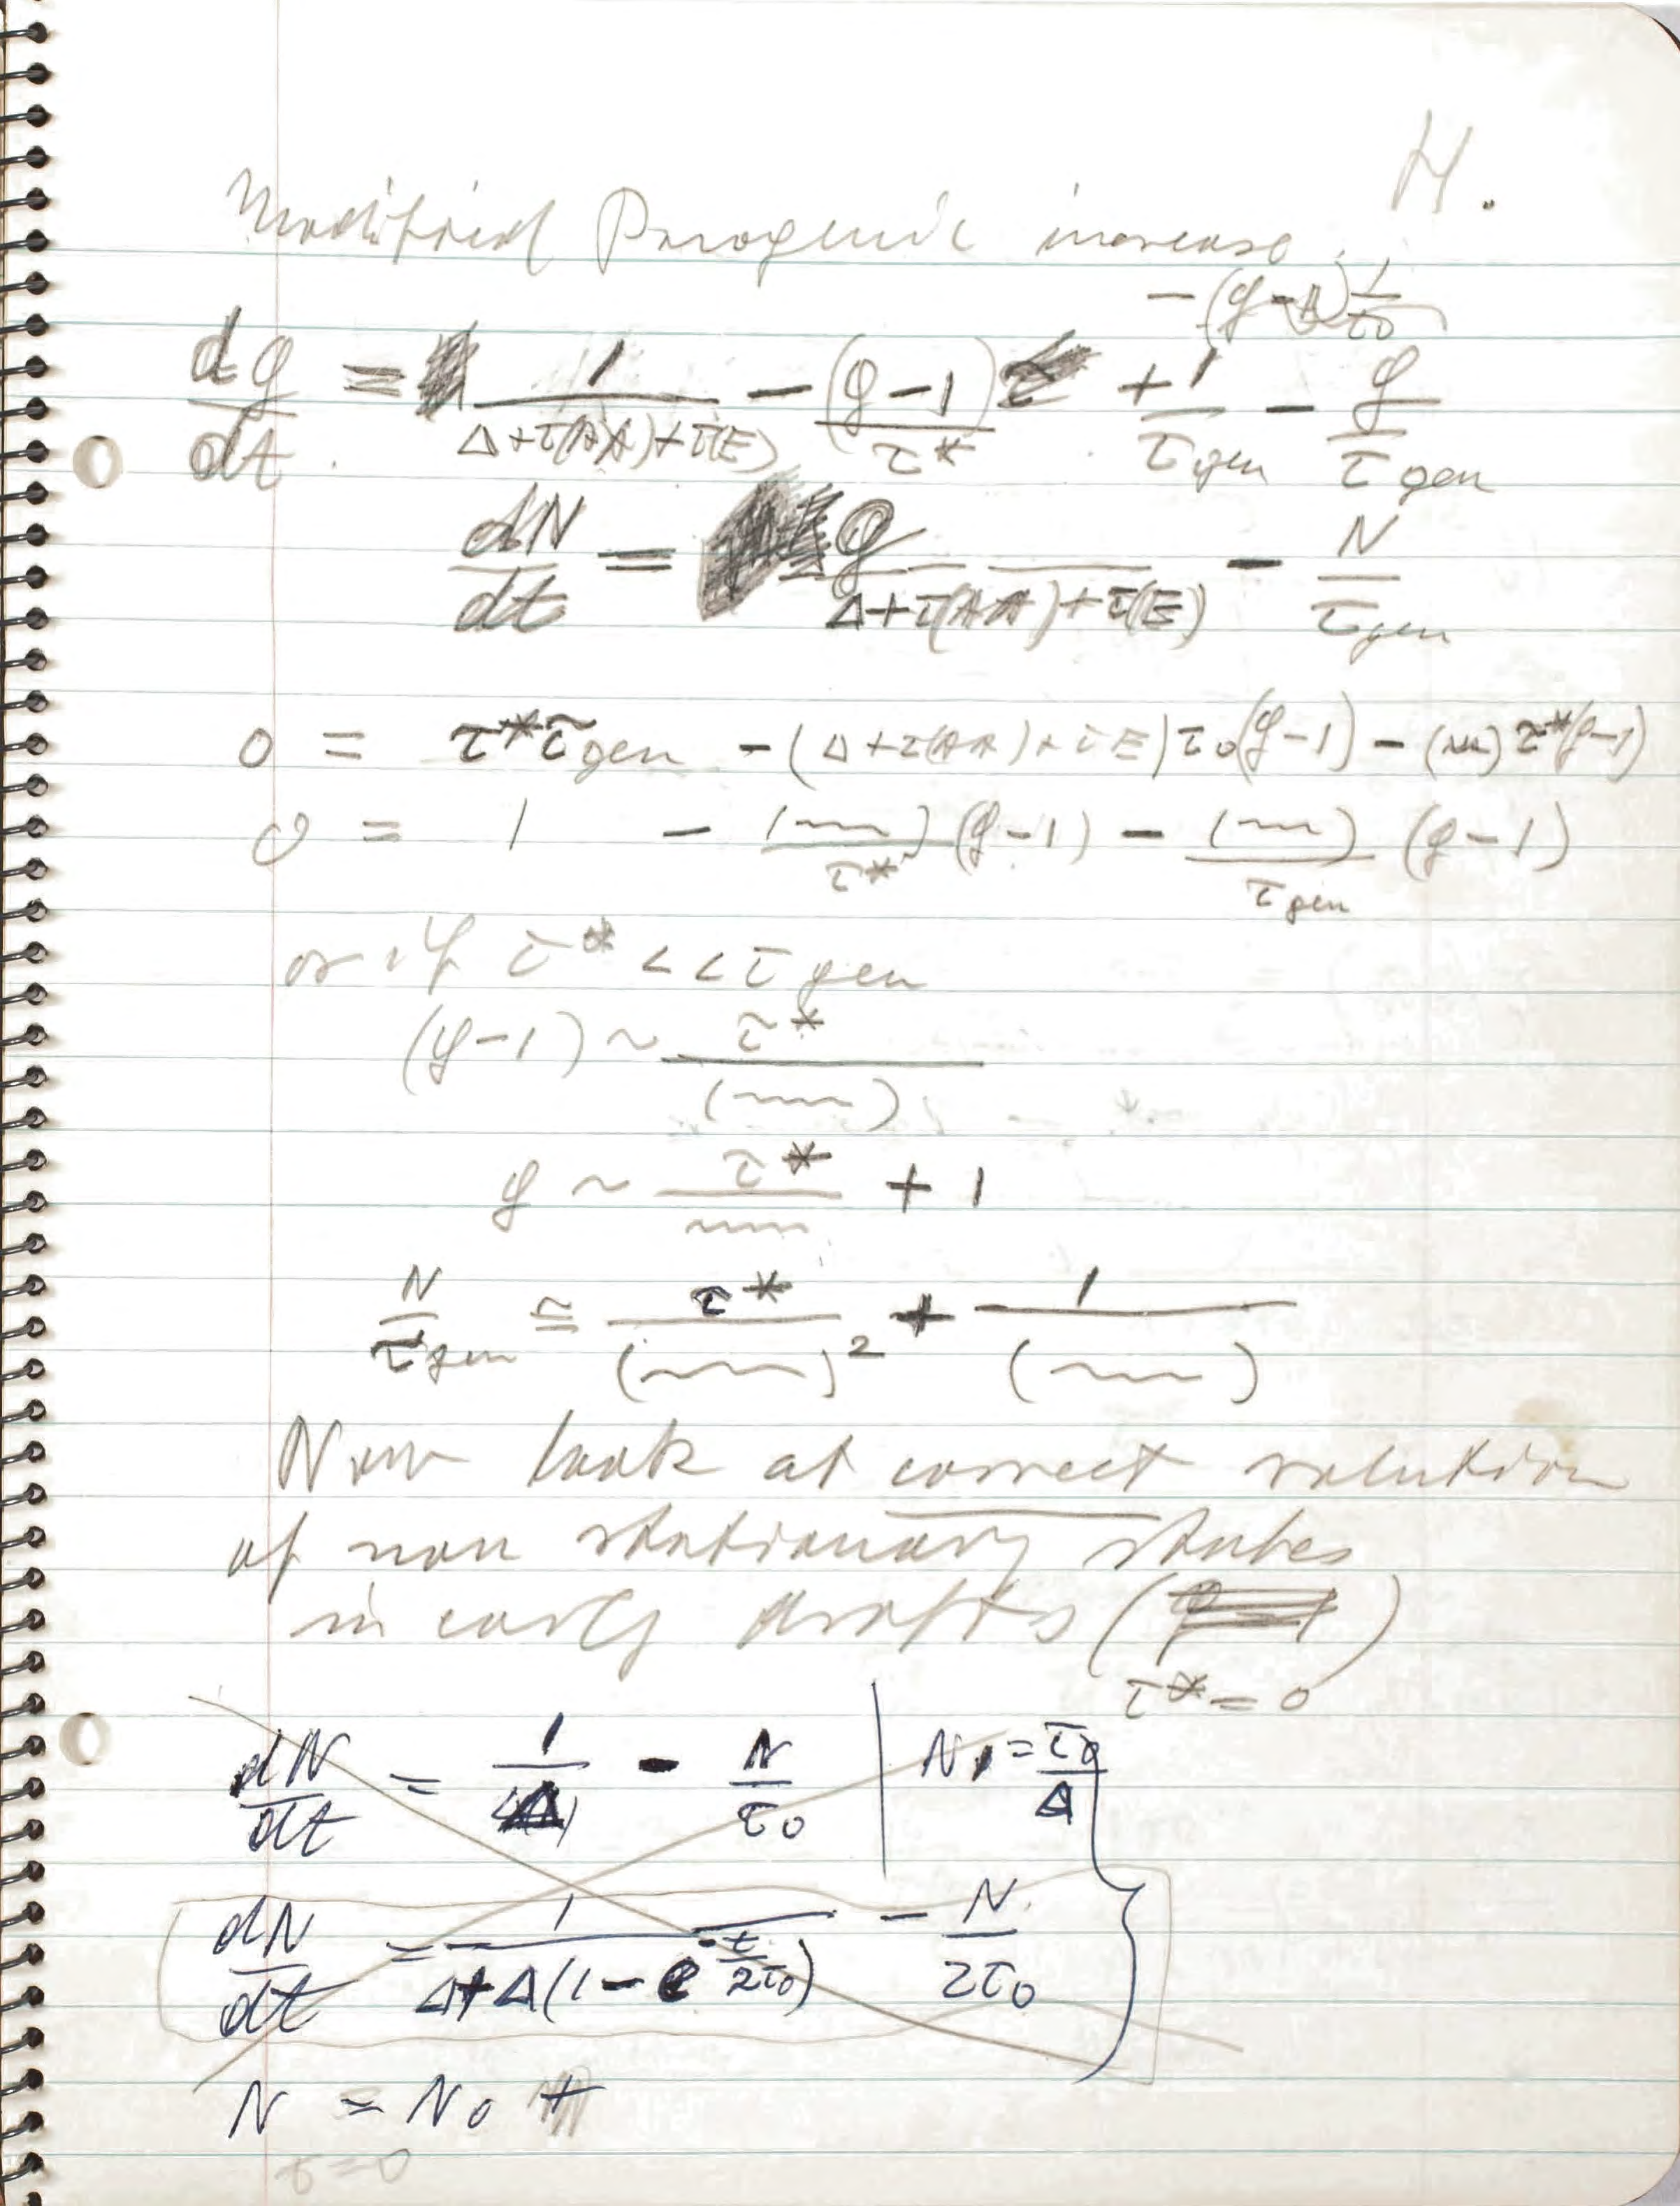 H.
Modified Parogenic increase
− (g − 1) 1/τ0
dg/dt = 1/(Δ+τ(AA)+τ(E)) − (g−1)/τ* + 1/τgen − g/τgen
dN/dt = g/(Δ+τ(AA)+τ(E)) − N/τgen
0 = τ*τgen − (Δ+τ(AA)+τE)τ0(g−1) − (~~)τ*(g−1)
0 = 1 − (~~)/τ* (g−1) − (~~)/τgen (g−1)
or if τ* << τgen
(g−1) ~ τ*/(~~)
g ~ τ*/~~ + 1
N/τgen ≅ τ*/(~~)² + 1/(~~)
Now look at correct solution
of non stationary states
in early drafts (
)
τ* = 0
dN/dt = 1/(Δ) − N/τ0 | N1 = τ0/Δ
dN/dt = 1/(Δ+Δ(1−e^−t/2τ0)) − N/2τ0
N = N0 +
t=0